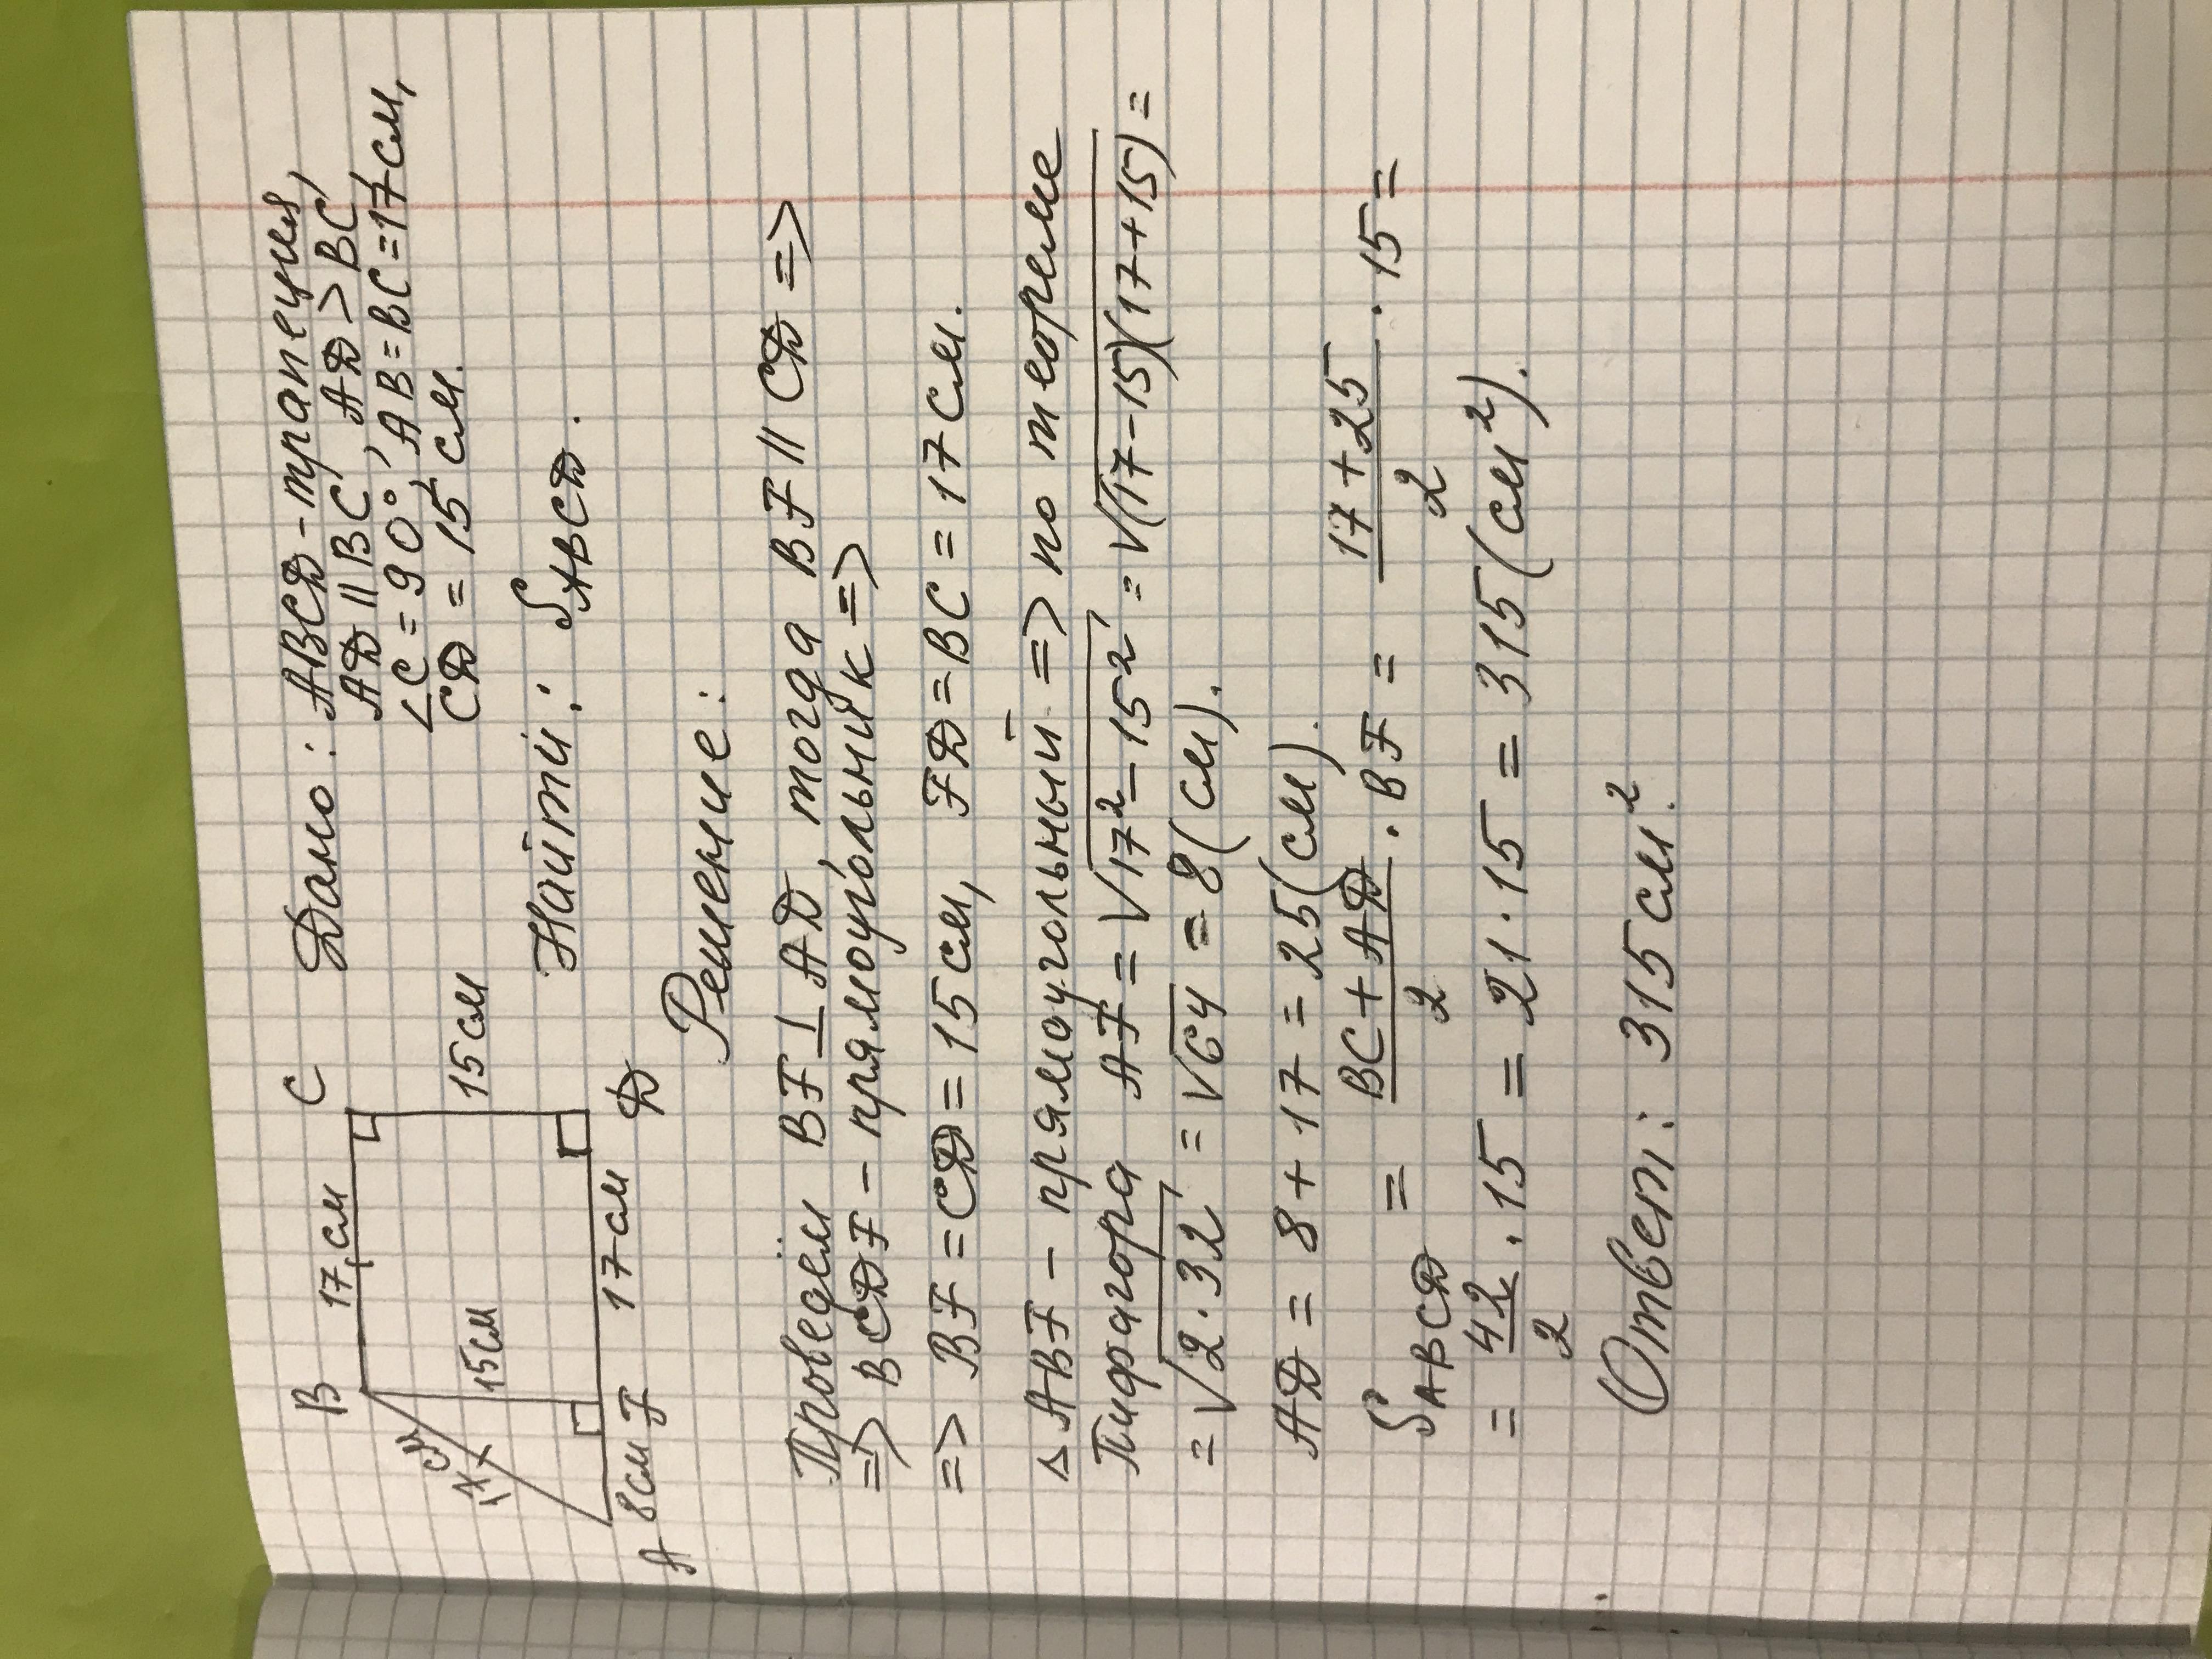 B 17 см C
17 см
15 см
15 см
A 8 см F 17 см D
Дано: ABCD - трапеция,
AD || BC, AD > BC,
∠C = 90°, AB = BC = 17 см,
CD = 15 см.
Найти: S ABCD.
Решение:
Проведём BF ⊥ AD, тогда BF || CD =>
=> BCDF - прямоугольник =>
=> BF = CD = 15 см, FD = BC = 17 см.
△ ABF - прямоугольный => по теореме
Пифагора AF = √17² - 15² = √(17-15)(17+15) =
= √2·32 = √64 = 8 (см).
AD = 8 + 17 = 25 (см).
S ABCD = (BC + AD)/2 · BF = (17+25)/2 · 15 =
= 42/2 · 15 = 21 · 15 = 315 (см²).
Ответ: 315 см².